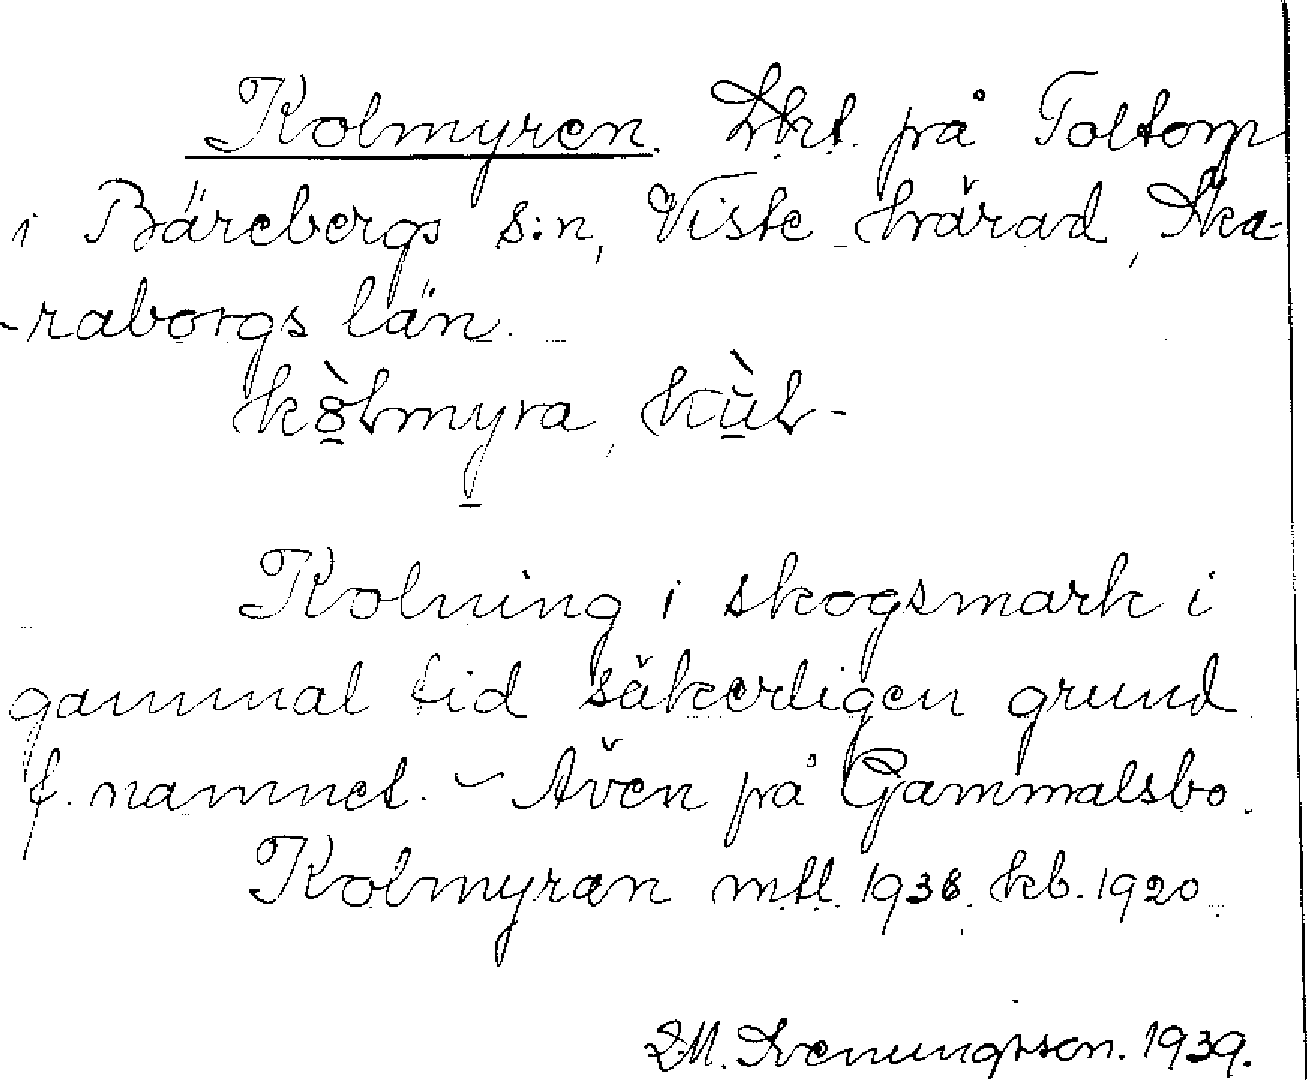 Kolmyren. Lht. på Toltorp
i Bärebergs s:n, Viste härad, Ska-
-raborgs län.
kòlmyra, kùl-
Kolning i skogsmark i
gammal tid säkerligen grund
f. namnet. – Även på Gammalsbo.
Kolmyran mtl. 1936. kb. 1920.
Svenungsson. 1939.